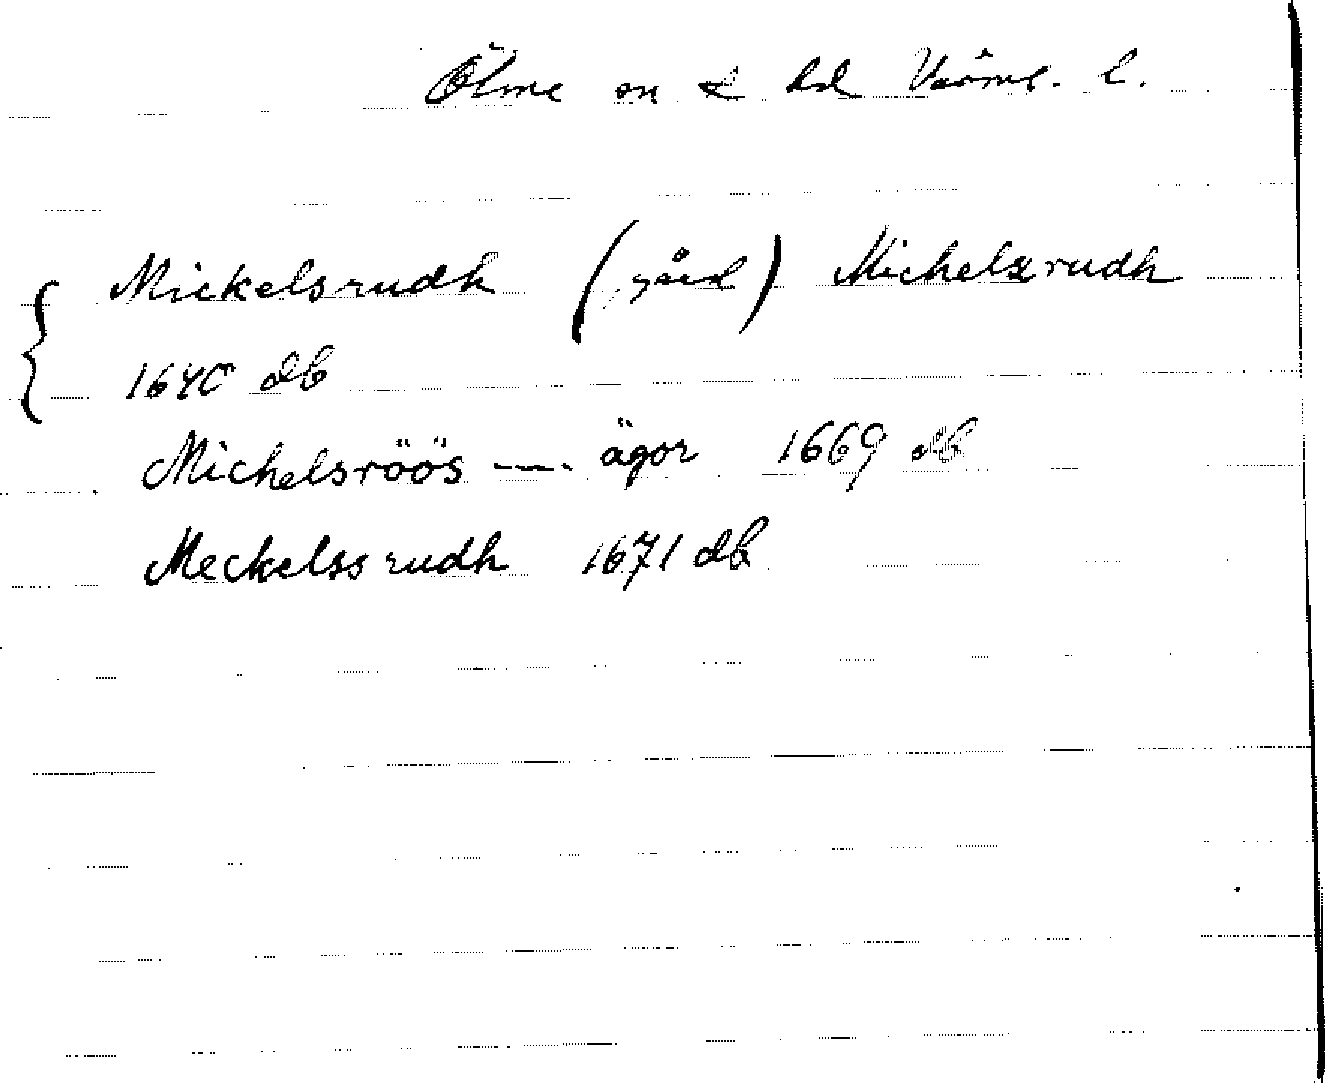 Ölme sn & hd Värml. l.
Mickelsrudh (gård) Michelsrudh
1640 db
Michelsröös —. ägor 1669 db
Meckelssrudh 1671 db